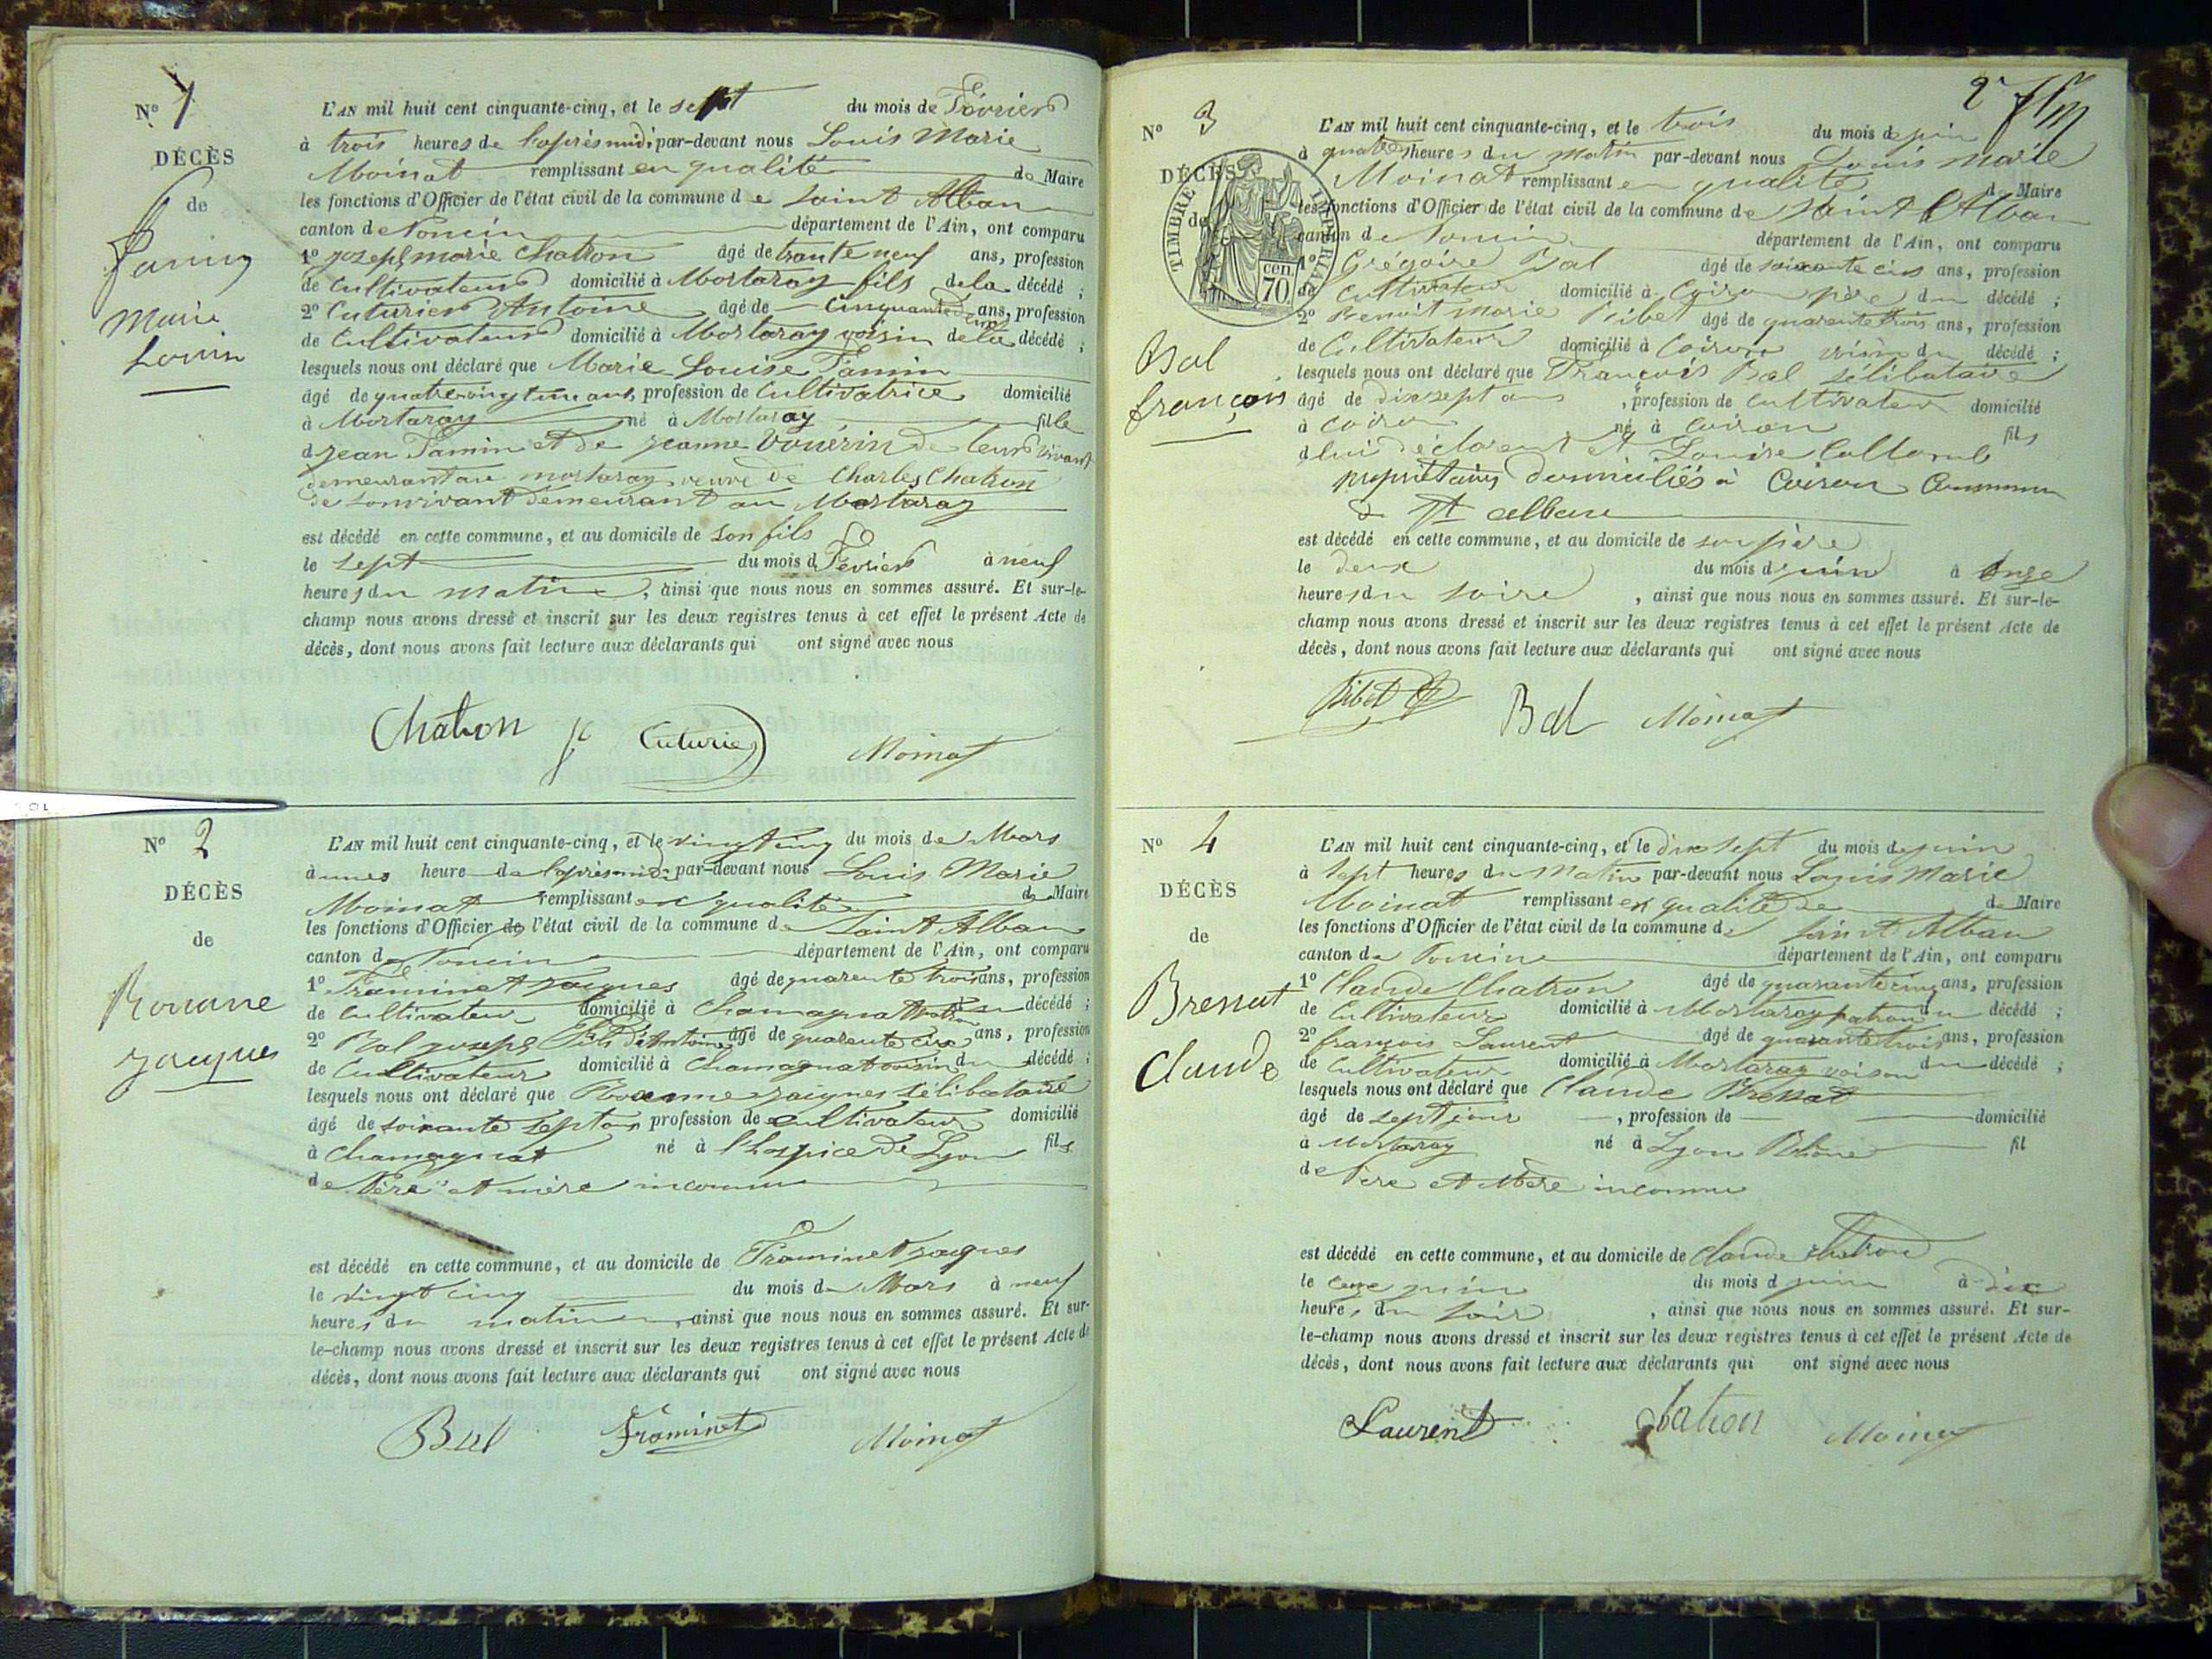 N° 1
DÉCÈS
de
Marie
Louise
L'AN mil huit cent cinquante-cinq, et le sept du mois de Février
à trois heures de l'après midi par-devant nous Louis Marie
Moinat remplissant en qualité de Maire
les fonctions d'Officier de l'état civil de la commune de Saint Alban
canton de Poncin département de l'Ain, ont comparu
1° joseph marie Chatron âgé de trante neuf ans, profession
de Cultivateur domicilié à Mortaray fils de la décédé ;
2° Cuturier Antoine âgé de cinquante deux ans, profession
de Cultivateur domicilié à Mortaray voisin de la décédé ;
lesquels nous ont déclaré que Marie Louise Tamin
âgé de quatrevingt un ans, profession de Cultivatrice domicilié
à Mortaray né à Mortaray fille
d jean Tamin et de jeanne Vouérin de leur vivant
demeurant au mortaray veuve de Charles Chatron
de son vivant demeurant au Mortaray
est décédé en cette commune, et au domicile de son fils
le sept du mois d Février à neuf
heures du matin, ainsi que nous nous en sommes assuré. Et sur-le-
champ nous avons dressé et inscrit sur les deux registres tenus à cet effet le présent Acte de
décès, dont nous avons fait lecture aux déclarants qui ont signé avec nous
Chatron Cuturier Moinat
N° 2
DÉCÈS
de
Rouane
jacques
L'AN mil huit cent cinquante-cinq, et le vingt cinq du mois de Mars
à unes heure de l'après midi par-devant nous Louis Marie
Moinat remplissant en qualité de Maire
les fonctions d'Officier de l'état civil de la commune de Saint Alban
canton de Poncin département de l'Ain, ont comparu
1° Traminet jacques âgé de quarente trois ans, profession
de Cultivateur domicilié à Chamagnat patron du décédé ;
2° Bal joseph fils d'Antoine âgé de quarente cinq ans, profession
de Cultivateur domicilié à Chamagnat voisin du décédé ;
lesquels nous ont déclaré que Rouanne jacques sélibataire
âgé de soixante sept ans profession de cultivateur domicilié
à Chamagnat né à l'hospice de Lyon fils
de Père et mère inconnu
est décédé en cette commune, et au domicile de Traminet jacques
le vingt cinq du mois de Mars à neuf
heures du matin, ainsi que nous nous en sommes assuré. Et sur-
le-champ nous avons dressé et inscrit sur les deux registres tenus à cet effet le présent Acte de
décès, dont nous avons fait lecture aux déclarants qui ont signé avec nous
Bal Traminet Moinat
2
N° 3
DÉCÈS
de
TIMBRE IMPÉRIAL
70 cen.
Bal
françois
L'AN mil huit cent cinquante-cinq, et le trois du mois de juin
à quatre heures du matin par-devant nous Louis Marie
Moinat remplissant en qualité de Maire
les fonctions d'Officier de l'état civil de la commune de Saint Alban
canton de Poncin département de l'Ain, ont comparu
1° Grégoire Bal âgé de soixante cinq ans, profession
de Cultivateur domicilié à Coiron père du décédé ;
2° Benoit Marie Ribet âgé de quarente trois ans, profession
de Cultivateur domicilié à Coiron voisin du décédé ;
lesquels nous ont déclaré que François Bal sélibataire
âgé de dixsept ans, profession de cultivateur domicilié
à Coiron né à Coiron fils
d lui déclarent et Louise
propriétaires domiciliés à Coiron Commune
de St alban
est décédé en cette commune, et au domicile de son père
le deux du mois d juin à onze
heures du soire, ainsi que nous nous en sommes assuré. Et sur-le-
champ nous avons dressé et inscrit sur les deux registres tenus à cet effet le présent Acte de
décès, dont nous avons fait lecture aux déclarants qui ont signé avec nous
Ribet Bal Moinat
N° 4
DÉCÈS
de
Bressat
Claude
L'AN mil huit cent cinquante-cinq, et le dix sept du mois de juin
à sept heures du Matin par-devant nous Louis Marie
Moinat remplissant en qualité de de Maire
les fonctions d'Officier de l'état civil de la commune de Saint Alban
canton de Poncin département de l'Ain, ont comparu
1° Claude Chatron âgé de quarante cinq ans, profession
de Cultivateur domicilié à Mortaray patron du décédé ;
2° françois Laurent âgé de quarante trois ans, profession
de Cultivateur domicilié à Mortaray voison du décédé ;
lesquels nous ont déclaré que Claude Bressat
âgé de sept jours, profession de domicilié
à Mortaray né à Lyon Rhône fil
de Père et Mère inconnu
est décédé en cette commune, et au domicile de Claude Chatron
le juin du mois d juin à dix
heures du soir, ainsi que nous nous en sommes assuré. Et sur-
le-champ nous avons dressé et inscrit sur les deux registres tenus à cet effet le présent Acte de
décès, dont nous avons fait lecture aux déclarants qui ont signé avec nous
Laurent Chatron Moinat